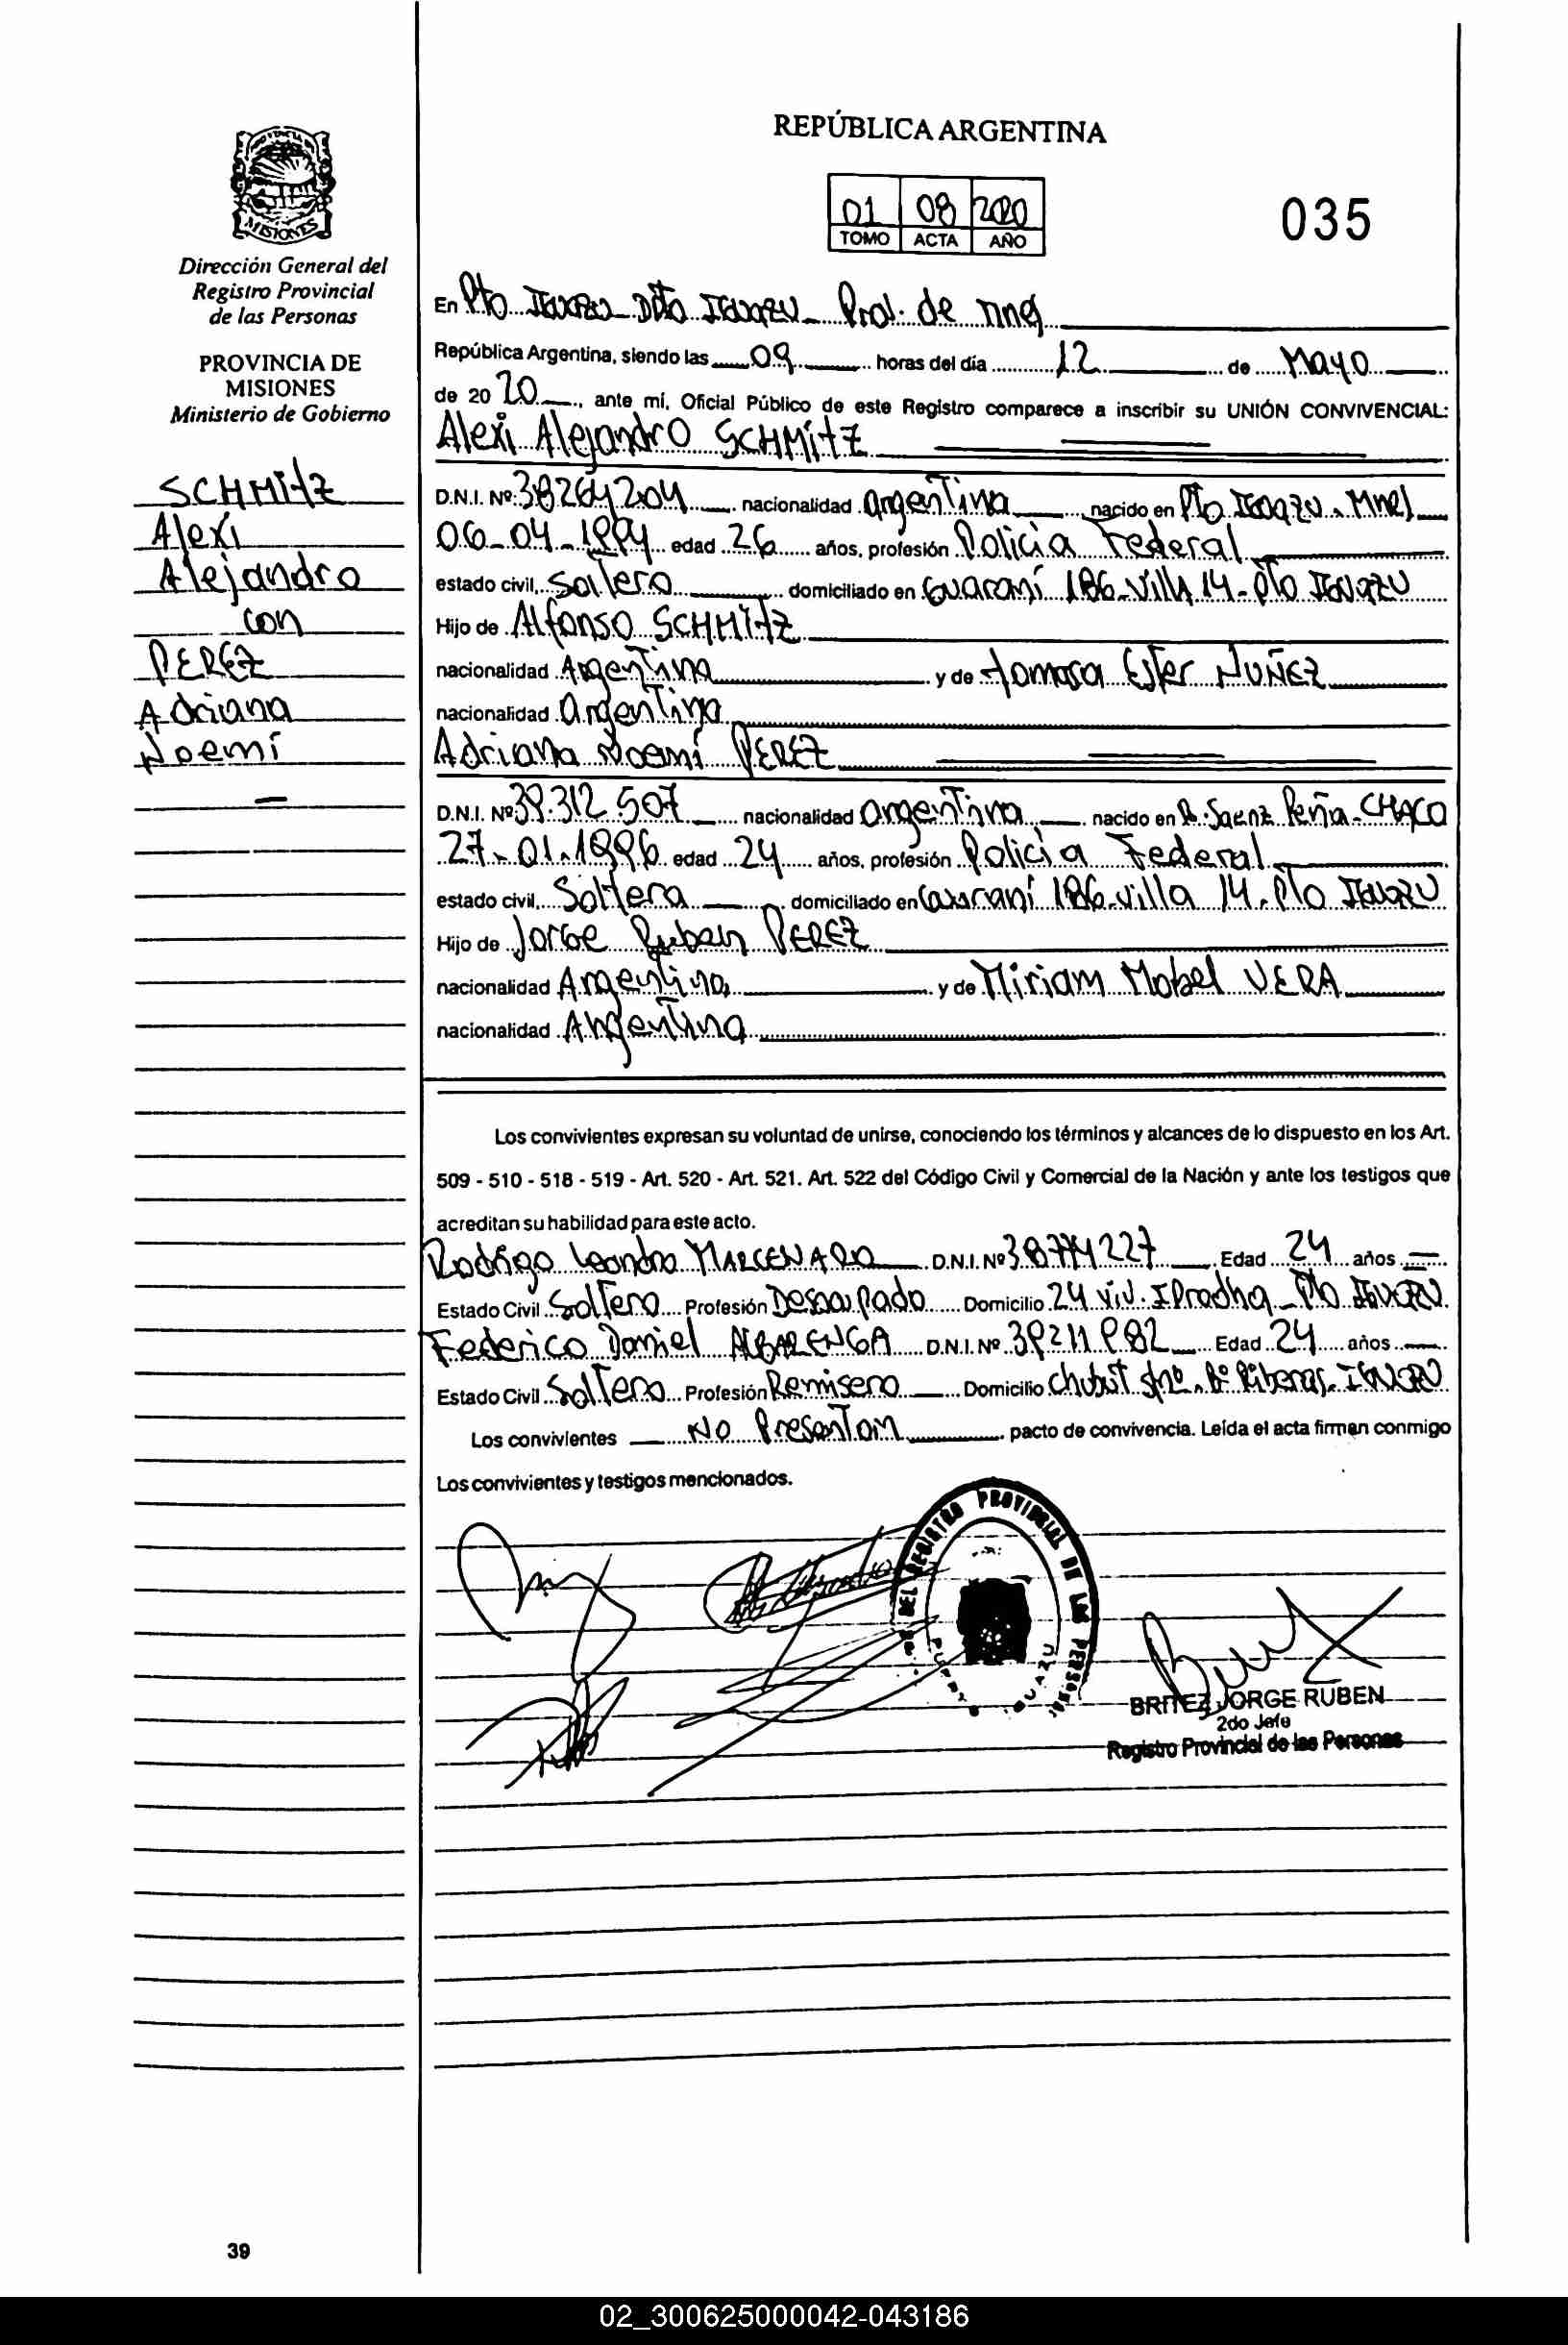 REPÚBLICA ARGENTINA
01 08 2020
TOMO ACTA AÑO
035
MISIONES
Dirección General del
Registro Provincial
de las Personas
PROVINCIA DE
MISIONES
Ministerio de Gobierno
SCHMitz
Alexi
Alejandro
con
PEREZ
Adriana
Noemí
En Pto Iguazu Dpto Iguazu Prov. de
República Argentina, siendo las 09 horas del día 12 de Mayo
de 20 20, ante mí, Oficial Público de este Registro comparece a inscribir su UNIÓN CONVIVENCIAL:
Alexi Alejandro SCHMitz
D.N.I. Nº: 38264204 nacionalidad Argentina nacido en Pto Iguazu
06-04-1994 edad 26 años, profesión Policia Federal
estado civil, Soltero domiciliado en Guaraní 186-Villa 14-Pto Iguazu
Hijo de Alfonso SCHMitz
nacionalidad Argentina y de Tomasa Ester NUÑEZ
nacionalidad Argentina
Adriana Noemí PEREZ
D.N.I. Nº 39.312.507 nacionalidad Argentina nacido en R. Saenz Peña-CHACO
27-01-1996 edad 24 años, profesión Policia Federal
estado civil, Soltera domiciliado en Guaraní 186-villa 14-Pto Iguazu
Hijo de Jorge Ruben PEREZ
nacionalidad Argentina y de Miriam Mabel VERA
nacionalidad Argentina
Los convivientes expresan su voluntad de unirse, conociendo los términos y alcances de lo dispuesto en los Art.
509 - 510 - 518 - 519 - Art. 520 - Art. 521. Art. 522 del Código Civil y Comercial de la Nación y ante los testigos que
acreditan su habilidad para este acto.
Rodrigo Leandro MARCENARO D.N.I. Nº 38774227 Edad 24 años
Estado Civil Soltero Profesión Desocupado Domicilio 24 viv. Pto Iguazu
Federico Daniel ALBARENGA D.N.I. Nº 39211982 Edad 24 años
Estado Civil Soltero Profesión Remisero Domicilio Chubut Bº Riberas-Iguazu
Los convivientes No Presentan pacto de convivencia. Leída el acta firman conmigo
Los convivientes y testigos mencionados.
DEL REGISTRO PROVINCIAL DE LAS PERSONAS
BRITEZ JORGE RUBEN
2do Jefe
Registro Provincial de las Personas
39
02_300625000042-043186